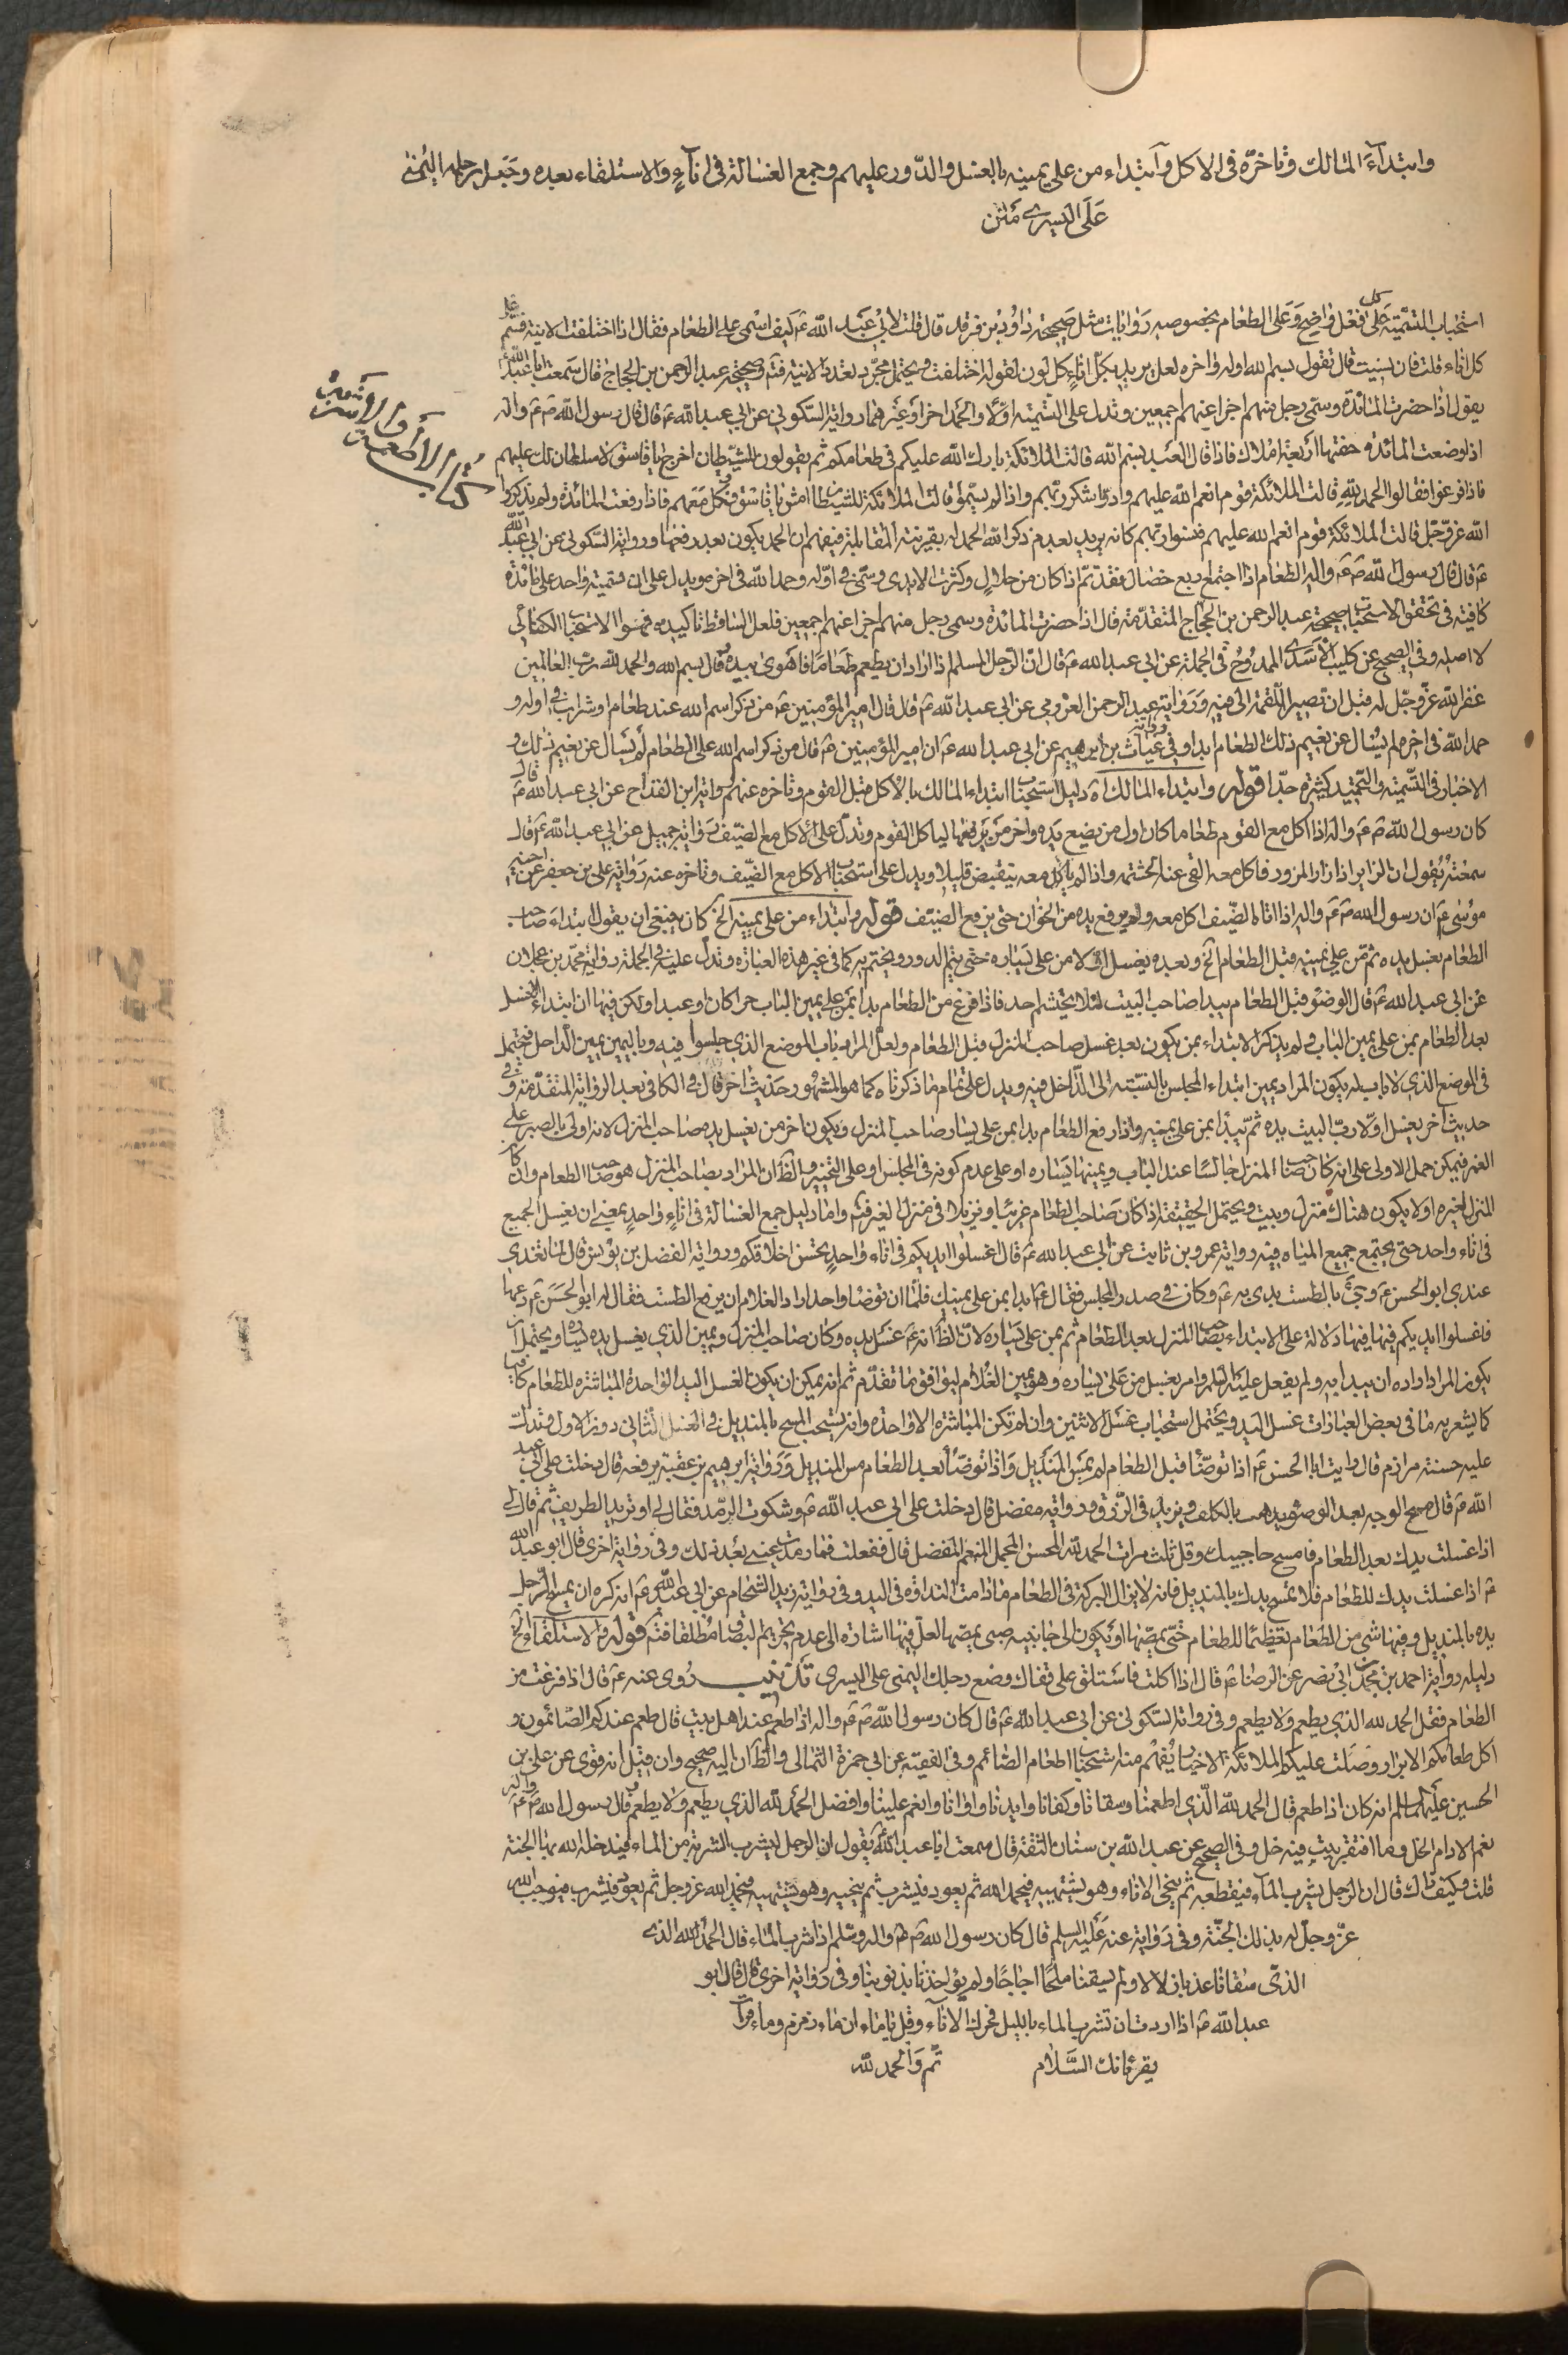 وابتداء المالك وتاخره في الاكل وابتداء من على يمينه بالغسل والدور عليهم وجمع الغسالة في اناء والاستلقاء بعده وجعل رجله اليمنى
على اليسرى متن
كتاب الاطعمة والاشربة
استحباب التسمية على كل فعل واضح وعلى الطعام بخصوصه روايات مثل صحيحة داود بن فرقد قال قلت لابي عبد الله ع كيف اسمي على الطعام فقال اذا اختلفت الانية فسم على
كل اناء قلت فان نسيت قال تقول بسم الله اوله واخره لعل يريد بكل اناء كل لون لقوله اختلفت ويحتمل مجرد تعدد الانية فتم وصحيحة عبد الرحمن بن الحجاج قال سمعت ابا عبد الله ع
يقول اذا حضرت المائدة وسمى رجل منهم اجزا عنهم اجمعين وتدل على التسمية اولا والحمد اخرا وغيرهما رواية السكوني عن ابي عبد الله ع قال قال رسول الله ص ع واله
اذا وضعت المائدة حفتها اربعة املاك فاذا قال العبد بسم الله قالت الملائكة بارك الله عليكم في طعامكم ثم يقولون للشيطان اخرج يا فاسق لا سلطان لك عليهم
فاذا فرغوا فقالوا الحمد لله قالت الملائكة قوم انعم الله عليهم فادوا شكر ربهم واذا لم يسموا قالت الملائكة للشيطان ادن يا فاسق فكل معهم فاذا رفعت المائدة ولم يذكروا
الله عز وجل قالت الملائكة قوم انعم الله عليهم فنسوا ربهم كانه يريد بعدم ذكر الله الحمد له بقرينة المقابلة فيفهم ان الحمد يكون بعد رفعها ورواية السكوني عن ابي عبد الله
ع قال قال رسول الله ص ع واله الطعام اذا اجتمع اربع خصال فقد تم اذا كان من حلال وكثرت الايدي وسمي في اوله وحمد الله في اخره ويدل على ان تسمية واحد على مائدة
كافية في تحقق الاستحباب صحيحة عبد الرحمن بن الحجاج المتقدمة قال اذا حضرت المائدة وسمى رجل منهم اجزا عنهم اجمعين فلعل الساقط تاكيده فهو الاستحباب الكفائي
لا اصله وفي الصحيح عن كليب الاسدي الممدوح في الجملة عن ابي عبد الله ع قال ان الرجل المسلم اذا اراد ان يطعم طعاما فاهوى بيده وقال بسم الله والحمد لله رب العالمين
غفر الله عز وجل له قبل ان تصير اللقمة الى فيه ورواية عبد الرحمن العزرمي عن ابي عبد الله ع قال قال امير المؤمنين ع من ذكر اسم الله عند طعام او شراب في اوله و
حمد الله في اخره لم يسئل عن نعيم ذلك الطعام ابدا وفي رواية غياث بن ابرهيم عن ابي عبد الله ع ان امير المؤمنين ع قال من ذكر اسم الله على الطعام لم يسأل عن نعيم ذلك و
الاخبار في التسمية والتحميد كثيرة جدا قوله وابتداء المالك اه دليل استحباب ابتداء المالك بالاكل قبل القوم وتاخره عنهم رواية ابن القداح عن ابي عبد الله ع قال
كان رسول الله ص ع واله اذا اكل مع القوم طعاما كان اول من يضع يده واخر من يرفعها لياكل القوم وتدل على الاكل مع الضيف رواية جميل عن ابي عبد الله ع قال
سمعته يقول ان الزاير اذا زار المزور فاكل معه القى عنه الحشمة واذا لم ياكل معه ينقبض قليلا ويدل على استحباب الاكل مع الضيف وتاخره عنه رواية علي بن جعفر عن اخيه
موسى ع ان رسول الله ص ع واله اذا اتاه الضيف اكل معه ولم يرفع يده من الخوان حتى يرفع الضيف قوله وابتداء من على يمينه الخ كان ينبغي ان يقول ابتداء صاحب
الطعام بغسل يده ثم من على يمينه قبل الطعام الخ وبعده يغسل اولا من على يساره حتى يتم الدور ويختم به كما في غير هذه العبارة وتدل عليه في الجملة رواية محمد بن عجلان
عن ابي عبد الله ع قال الوضوء قبل الطعام يبدا صاحب البيت لئلا يحتشم احد فاذا فرغ من الطعام بدا بمن على يمين الباب حرا كان او عبدا ولكن فيها ان ابتداء الغسل
بعد الطعام بمن على يمين الباب ولم يذكر الابتداء بمن يكون بعد غسل صاحب المنزل قبل الطعام ولعل المراد باب الموضع الذي جلسوا فيه وباليمين يمين الداخل فيحتمل
في الموضع الذي لا باب له يكون المراد يمين ابتداء المجلس بالنسبة الى الداخل فيه ويدل على تمام ما ذكرناه كما هو المشهور حديث اخر قال في الكافي بعد الرواية المتقدمة وفي
حديث اخر يغسل اولا رب البيت يده ثم يبدا بمن على يمينه واذا رفع الطعام بدا بمن على يسار صاحب المنزل ويكون اخر من يغسل يده صاحب المنزل لانه اولى بالصبر على
الغمر فيمكن حمل الاولى على انه كان صاحب المنزل جالسا عند الباب ويمينها يساره او على عدم كونه في المجلس او على التخيير والظاهر ان المراد بصاحب المنزل هو صاحب الطعام وان كان
المنزل لغيره او لا يكون هناك منزل وبيت ويحتمل الحقيقة اذا كان صاحب الطعام غريبا ونزيلا في منزل الغير فتم واما دليل جمع الغسالة في اناء واحد بمعنى ان يغسل الجميع
في اناء واحد حتى يجتمع جميع المياه فيه رواية عمرو بن ثابت عن ابي عبد الله ع قال اغسلوا ايديكم في اناء واحد يحسن اخلاقكم ورواية الفضل بن يونس قال لما تغدى
عندي ابو الحسن ع وجئ بالطست بدئ به ع وكان في صدر المجلس فقال ع ابدا بمن على يمينك فلما ان توضا واحد اراد الغلام ان يرفع الطست فقال له ابو الحسن ع دعها
فاغسلوا ايديكم فيها فيها دلالة على الابتداء بصاحب المنزل بعد الطعام ثم بمن على يساره لان الظاهر انه ع غسل يده وكان صاحب المنزل ويمين الذي يغسل يده يساره ويحتمل ان
يكون المراد اراده ان يبدا به ولم يفعل عليه السلم وامر بغسل من على يساره وهو يمين الغلام ليوافق ما تقدم ثم انه يمكن ان يكون الغسل اليد الواحدة المباشرة للطعام كافيا
كما يشعر به ما في بعض العبارات غسل اليد ويحتمل استحباب غسل الاثنين وان لم تكن المباشرة الا واحدة وانه يستحب المسح بالمنديل في الغسل الثاني دون الاول وتدل
عليه حسنة مرازم قال رايت ابا الحسن ع اذا توضا قبل الطعام لم يمس المنديل واذا توضا بعد الطعام مس المنديل ورواية ابرهيم بن عقبة يرفعه قال دخلت على ابي عبد
الله ع قال مسح الوجه بعد الوضوء يذهب بالكلف ويزيد في الرزق ورواية مفضل قال دخلت على ابي عبد الله ع وشكوت الرمد فقال لي او تريد الطريف ثم قال لي
اذا غسلت يدك بعد الطعام فامسح حاجبيك وقل ثلث مرات الحمد لله المحسن المجمل المنعم المفضل قال ففعلت فما رمدت عيني بعد ذلك وفي رواية اخرى قال ابو عبد الله
ع اذا غسلت يدك للطعام فلا تمسح يدك بالمنديل فانه لا يزال البركة في الطعام ما دامت النداوة في اليد وفي رواية زيد الشحام عن ابي عبد الله ع انه كره ان يمسح الرجل
يده بالمنديل وفيها شئ من الطعام تعظيما للطعام حتى يمصها او يكون الى جانبه صبي يمصها لعل فيها اشارة الى عدم تحريم البصاق مطلقا فتم قوله والاستلقاء الخ
دليله رواية احمد بن محمد بن ابي نصر عن الرضا ع قال اذا اكلت فاستلق على قفاك وضع رجلك اليمنى على اليسرى تذنيب روى عنه ع قال اذا فرغت من
الطعام فقل الحمد لله الذي يطعم ولا يطعم وفي رواية السكوني عن ابي عبد الله ع قال كان رسول الله ص ع واله اذا طعم عند اهل بيت قال طعم عندكم الصائمون و
اكل طعامكم الابرار وصلت عليكم الملائكة الاخيار يفهم منه استحباب اطعام الصائم وفي الفقيه عن ابي حمزة الثمالي والظاهر ان اليه صحيح وان قيل انه قوي عن علي بن
الحسين عليهما السلم انه كان اذا طعم قال الحمد لله الذي اطعمنا وسقانا وكفانا وايدنا واوانا وانعم علينا وافضل الحمد لله الذي يطعم ولا يطعم وقال رسول الله ص ع واله
نعم الادام الخل وما افتقر بيت فيه خل وفي الصحيح عن عبد الله بن سنان الثقة قال سمعت ابا عبد الله ع يقول ان الرجل ليشرب الشربة من الماء فيدخله الله بها الجنة
قلت وكيف ذاك قال ان الرجل يشرب الماء فيقطعه ثم ينحي الاناء وهو يشتهيه فيحمد الله ثم يعود فيشرب ثم ينحيه وهو يشتهيه فيحمد الله عز وجل ثم يعود فيشرب فيوجب الله
عز وجل له بذلك الجنة وفي رواية عنه عليه السلم قال كان رسول الله ص ع واله وسلم اذا شرب الماء قال الحمد لله الذي
الذي سقانا عذبا زلالا ولم يسقنا ملحا اجاجا ولم يؤاخذنا بذنوبنا وفي رواية اخرى قال قال ابو
عبد الله ع اذا اردت ان تشرب الماء بالليل فحرك الاناء وقل يا ماء ان ماء زمزم وماء فرات
يقرئانك السلام تم والحمد لله